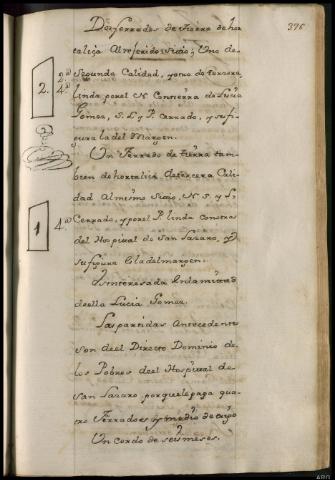 376
Dos ferrados de tierra de hor
taliza Al referido Sitio; Uno de
2.ª Segunda Calidad, y otro de tercera,
4.ª linda por el N. Con tierra de Lucia
2.
Gomez, S. L. y P. Cerrado, y su fi
gura la del Margen.
Un Ferrado de tierra tam
bien de hortaliza, de tercera Cali
dad Al mismo Sitio, N. S. y L.
4.ª Cerrado, y por el P. linda Con otra
1
del Hospital de San Lazaro, y
su figura la del margen.
Es interesada En la mitad
de ella Lucia Gomez.
Las partidas Antecedentes
son de el Directo Dominio de
los Pobres de el Hospital de
San Lazaro, por que le paga qua
tro Ferrados y medio de trigo
Un cerdo de seis meses.